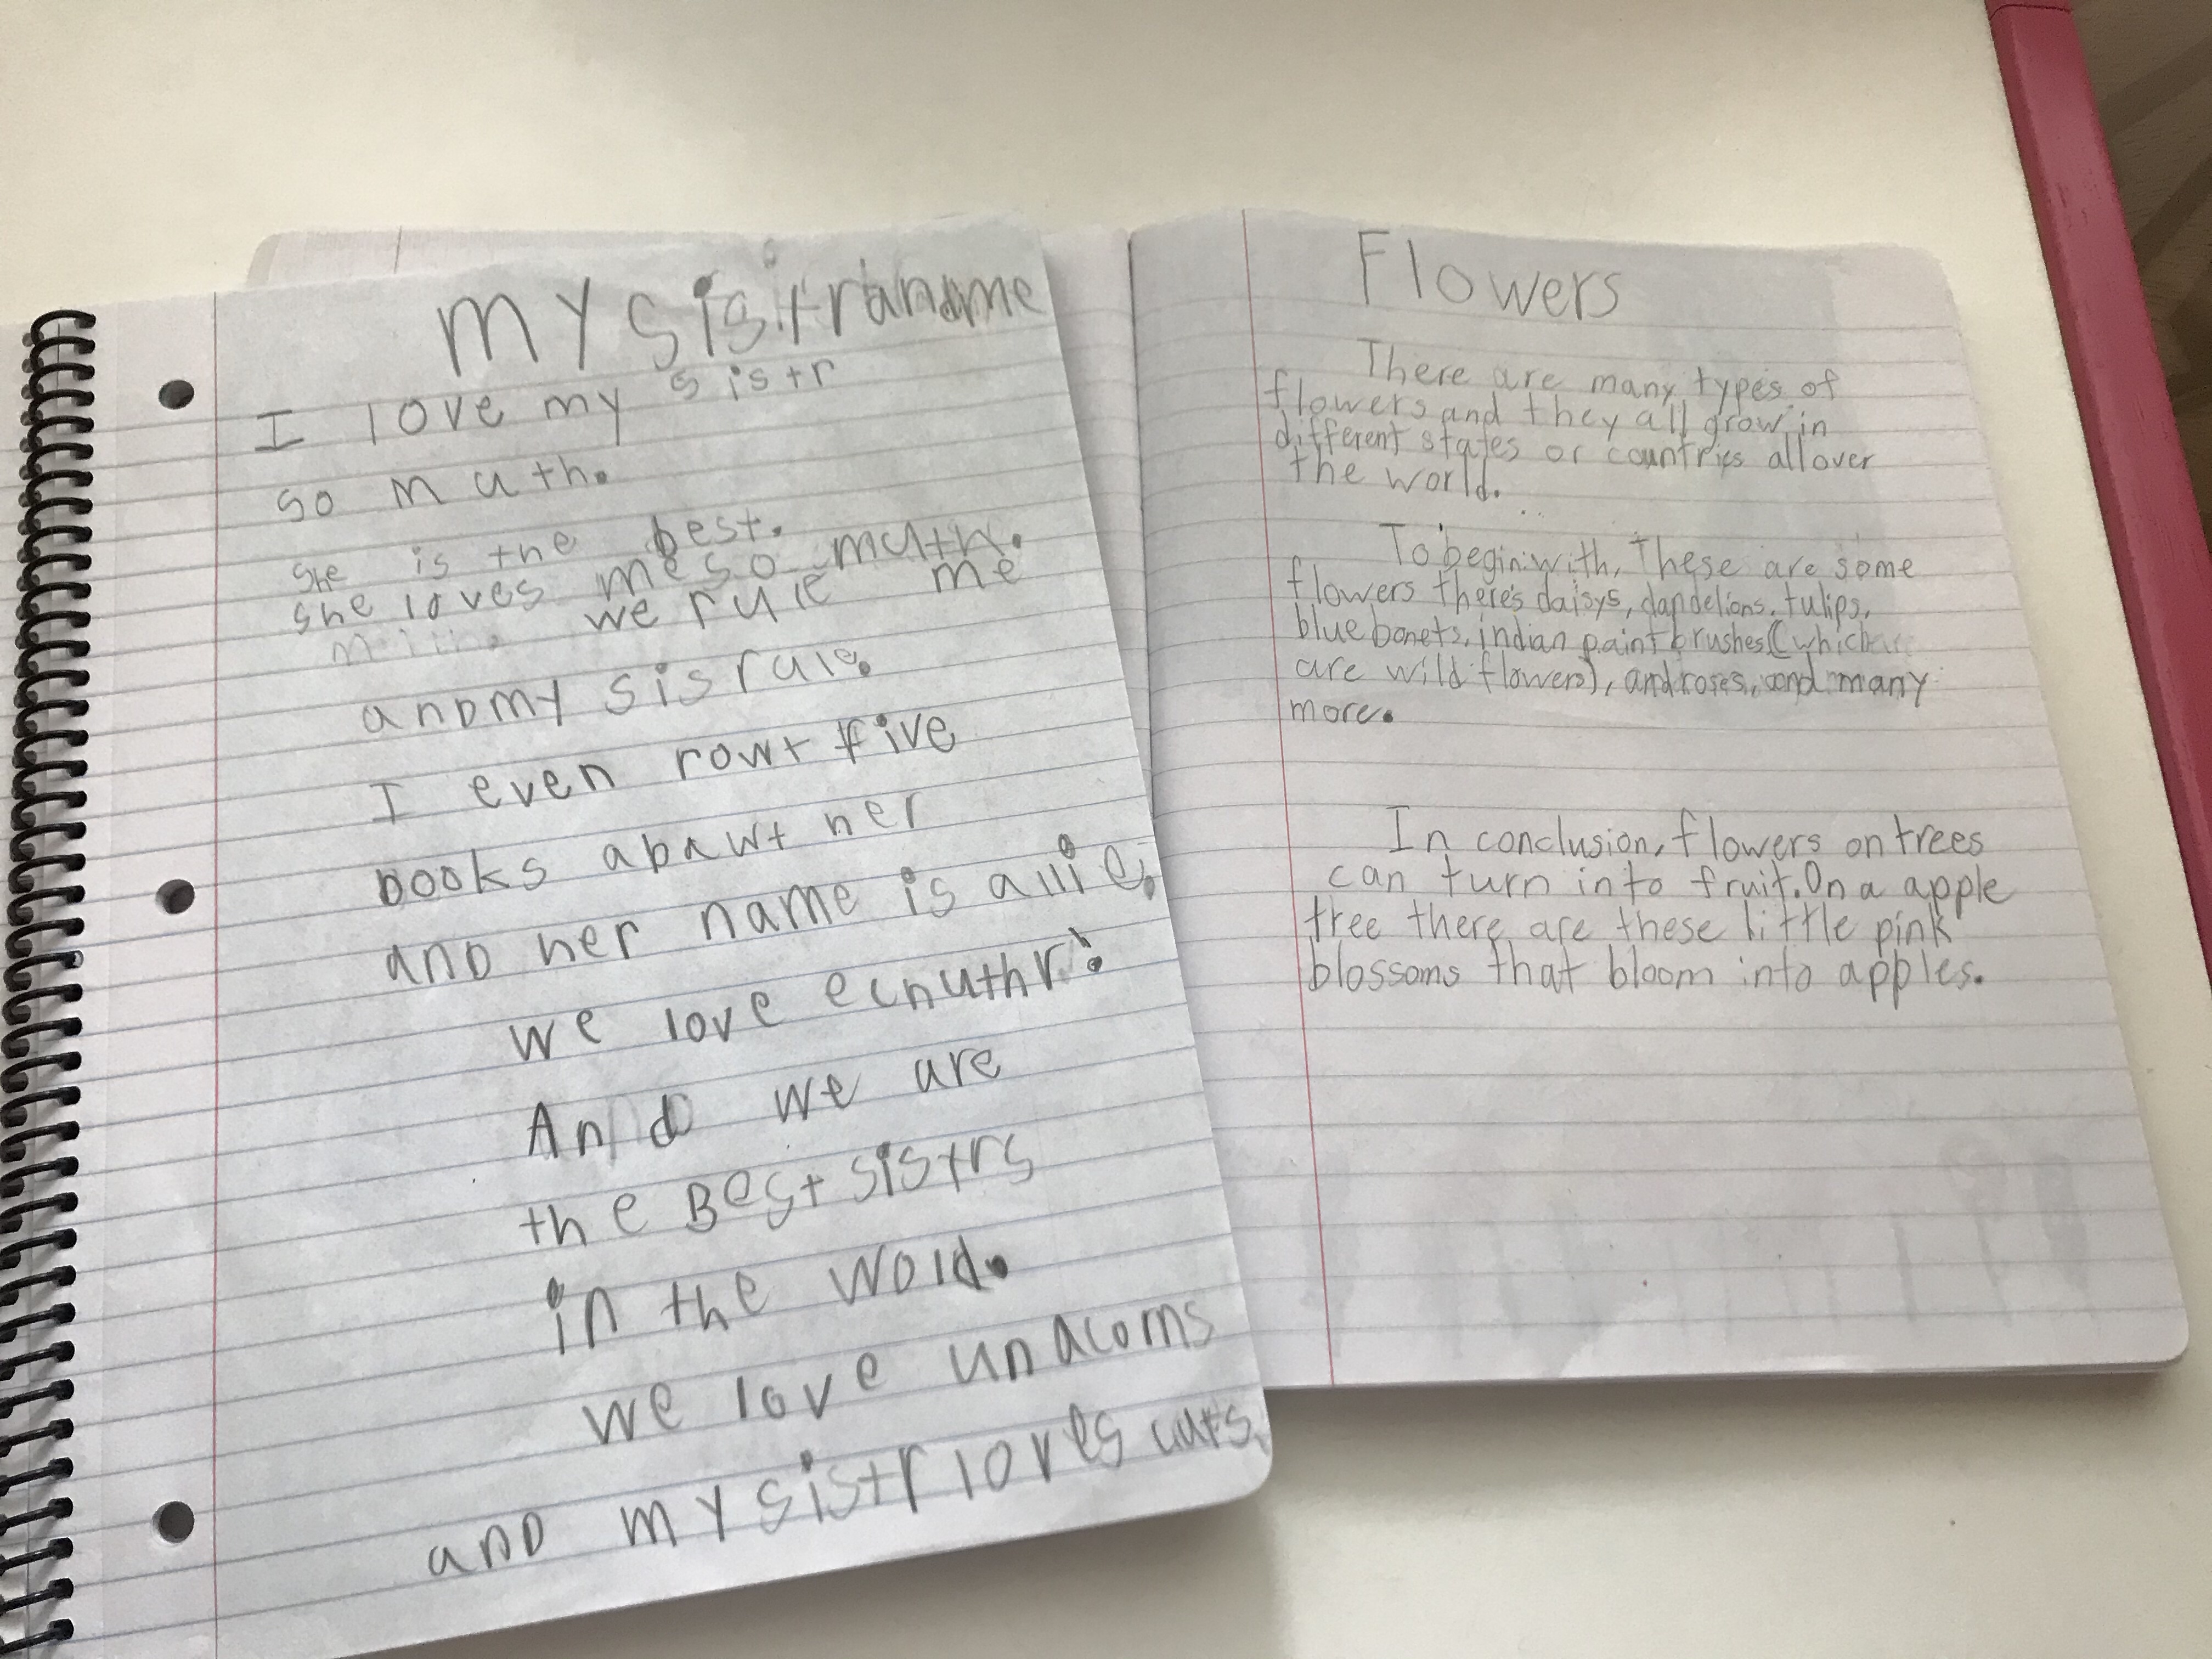 my sistr and me
I love my sistr
so muth.
she is the best.
she loves me so muth.
we rule me
and my sis rule.
I even rowt five
books abawt her
and her name is allie.
we love echuthr!
And we are
the Best sistrs
in the wold.
we love unacorns
and my sistr loves cats.
Flowers
There are many types of
flowers and they all grow in
different states or countries all over
the world.
To begin with, These are some
flowers there's daisys, dandelions, tulips,
blue bonets, indian paint brushes (which
are wild flowers), and roses, and many
more.
In conclusion, flowers on trees
can turn into fruit. On a apple
tree there are these little pink
blossoms that bloom into apples.